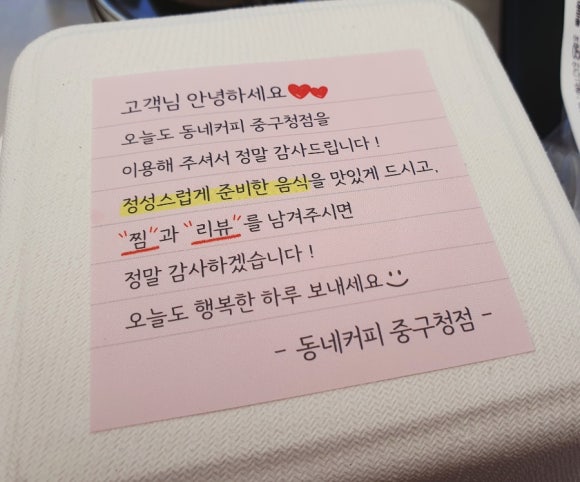 고객님 안녕하세요
오늘도 동네커피 중구청점을
이용해 주셔서 정말 감사드립니다!
정성스럽게 준비한 음식을 맛있게 드시고,
"찜"과 "리뷰"를 남겨주시면
정말 감사하겠습니다!
오늘도 행복한 하루 보내세요
- 동네커피 중구청점 -